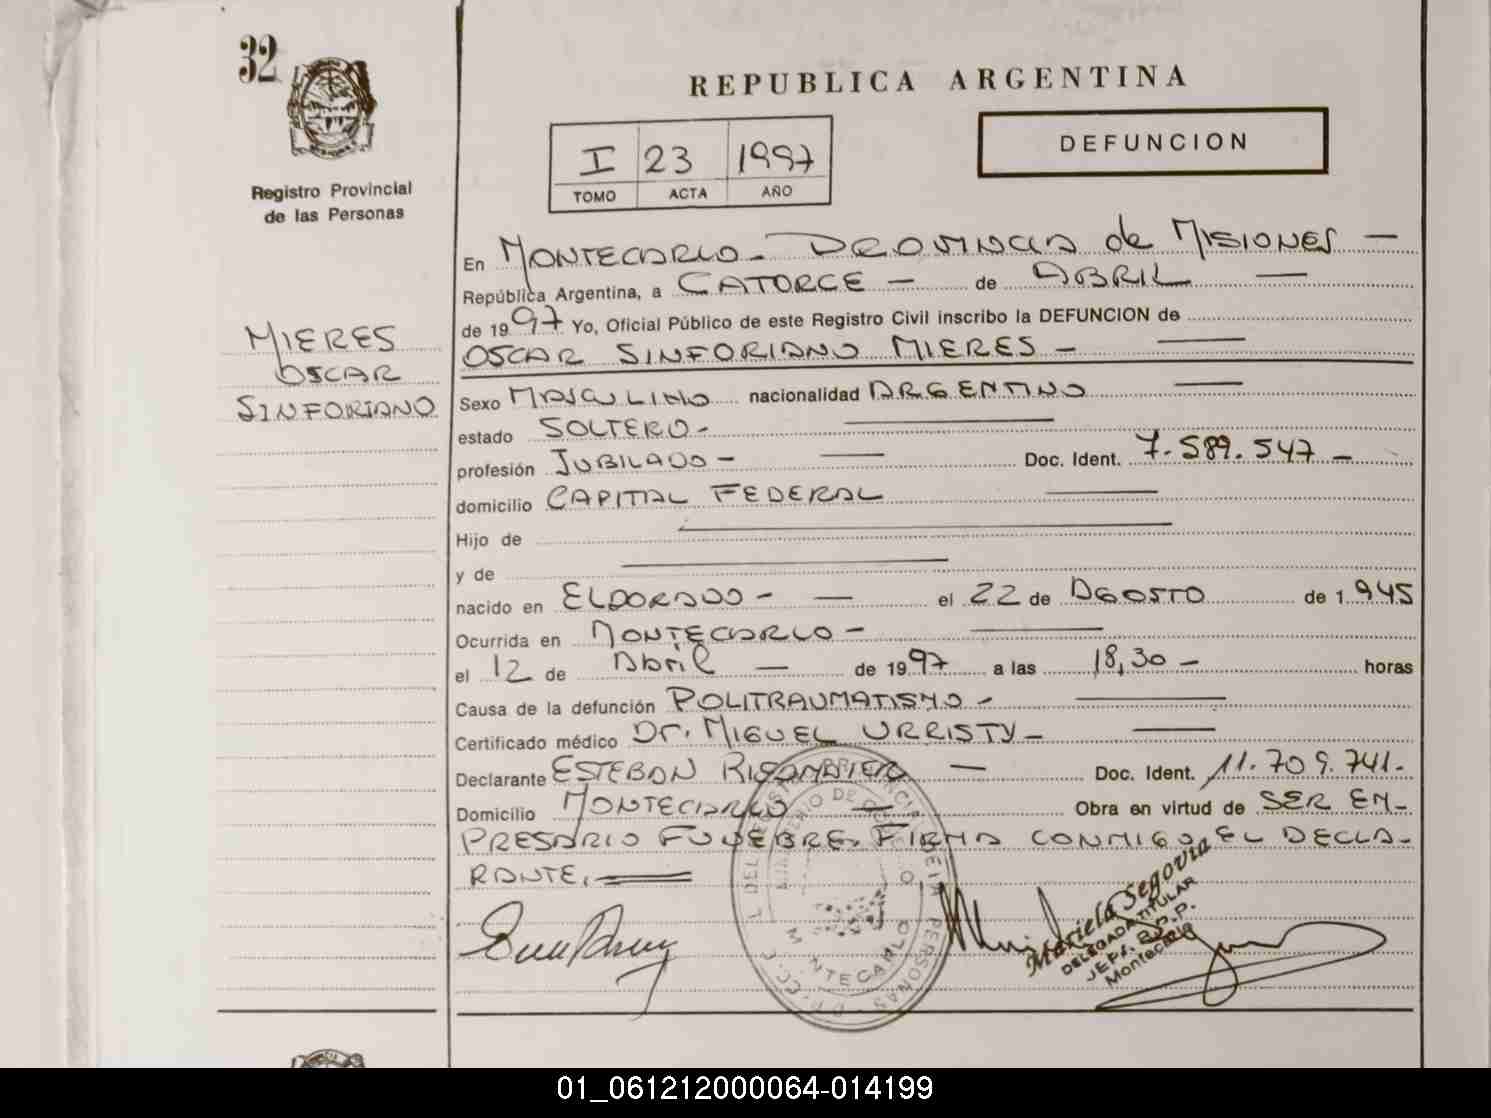 32
REPUBLICA ARGENTINA
DEFUNCION
I 23 1997
TOMO ACTA AÑO
Registro Provincial
de las Personas
MIERES
OSCAR
SINFORIANO
En MONTECARLO - PROVINCIA de MISIONES —
República Argentina, a CATORCE — de ABRIL —
de 1997 Yo, Oficial Público de este Registro Civil inscribo la DEFUNCION de
OSCAR SINFORIANO MIERES —
Sexo MASCULINO nacionalidad ARGENTINO —
estado SOLTERO -
profesión JUBILADO - Doc. Ident. 7.589.547 —
domicilio CAPITAL FEDERAL —
Hijo de
y de
nacido en ELDORADO - el 22 de AGOSTO de 1.945
Ocurrida en MONTECARLO -
el 12 de Abril — de 1997 a las 18,30 - horas
Causa de la defunción POLITRAUMATISMO -
Certificado médico Dr. MIGUEL URRISTY -
Declarante ESTEBAN — Doc. Ident. 11.709.741.-
Domicilio MONTECARLO — Obra en virtud de SER EM-
PRESARIO FUNEBRE. FIRMA CONMIGO EL DECLA-
RANTE.
MONTECARLO
Mariela Segovia
DELEGADA TITULAR
Montecarlo
01_061212000064-014199